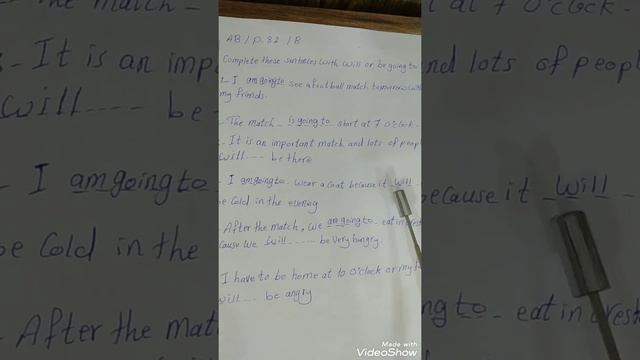 AB / P. 82 / B
Complete these sentences with will or be going to
1- I am going to see a football match tomorrow with
my friends.
The match is going to start at 7 o'clock.
It is an important match and lots of people
will .... be there
I am going to wear a coat because it will
be cold in the evening
After the match, we am going to eat in
cause we will ..... be very hungry.
I have to be home at 10 o'clock or my
will .... be angry
Made with
VideoShow